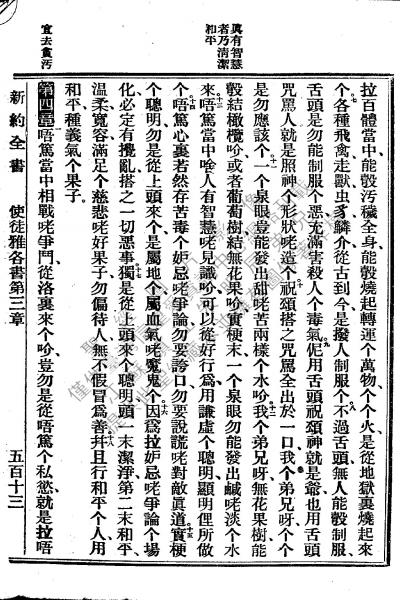 眞有智慧
者乃清潔
和平
宜去貪污
拉百體當中能彀汚穢全身能彀燒起轉運个萬物个个火是從地獄裏燒起來
个各種飛禽走獸虫豸鱗介從古到今是撥人制服个不過舌頭無人能彀制服
舌頭是勿能制服个惡充滿害殺人个毒氣伲用舌頭祝頌神就是爺也用舌頭
咒罵人就是照神个形狀咾造个祝頌搭之咒罵全出於一口我个弟兄呀个个
是勿應該个一个泉眼豈能發出甜咾苦兩樣个水吤我个弟兄呀無花果樹能
彀結橄欖吤或者葡萄樹結無花果吤實梗末一个泉眼勿能發出鹹咾淡个水
來唔篤當中啥人有智慧咾見識吤可以從好行爲用謙虛个聰明顯明俚所做
个唔篤心裏若然存苦毒个妒忌咾爭論勿要誇口勿要說謊咾對敵眞道實梗
个聰明勿是從上頭來个是屬地个屬血氣咾魔鬼个因爲拉妒忌咾爭論个場
化必定有攪亂搭之一切惡事獨是從上頭來个聰明頭一末潔淨第二末和平
溫柔寬容滿足个慈悲咾好果子勿偏待人無不假冒爲善幷且行和平个人用
和平種義氣个果子
第四章唔篤當中相戰咾爭鬥從洛裏來个吤豈勿是從唔篤个私慾就是拉唔
新約全書 使徒雅各書第三章 五百十三